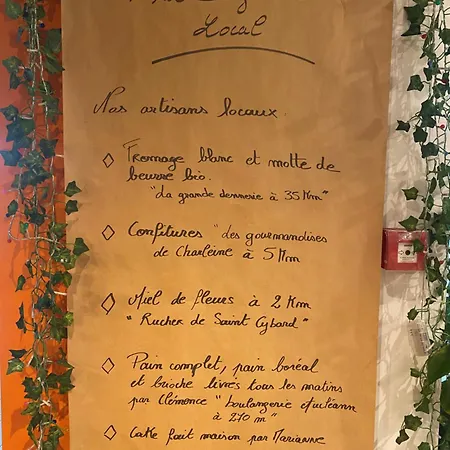 Local
Nos artisans locaux.
◇ Fromage blanc et motte de
beurre bio.
"La grande dennerie à 35 Km"
◇ Confitures "des gourmandises
de Charlène à 5 Km
◇ Miel de fleurs à 2 Km
"Rucher de Saint Cybard"
◇ Pain complet, pain boréal
et brioche livrés tous les matins
par Clémence "boulangerie
à 270 m"
◇ Cake fait maison par Marianne